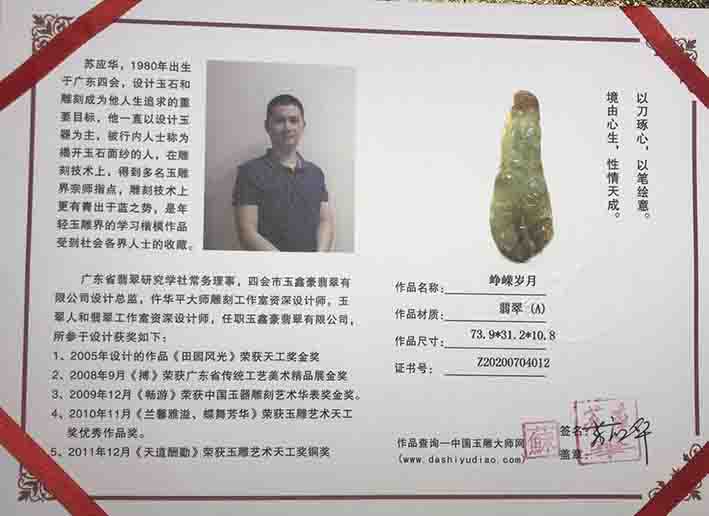 苏应华，1980年出生
于广东四会，设计玉石和
雕刻成为他人生追求的重
要目标，他一直以设计玉
器为主，被行内人士称为
揭开玉石面纱的人，在雕
刻技术上，得到多名玉雕
界宗师指点，雕刻技术上
更有青出于蓝之势，是年
轻玉雕界的学习楷模作品
受到社会各界人士的收藏。
广东省翡翠研究学社常务理事，四会市玉鑫豪翡翠有
限公司设计总监，仵华平大师雕刻工作室资深设计师，玉
翠人和翡翠工作室资深设计师，任职玉鑫豪翡翠有限公司，
所参于设计获奖如下：
1、2005年设计的作品《田园风光》荣获天工奖金奖
2、2008年9月《搏》荣获广东省传统工艺美术精品展金奖
3、2009年12月《畅游》荣获中国玉器雕刻艺术华表奖金奖。
4、2010年11月《兰馨雅溢、蝶舞芳华》荣获玉雕艺术天工
奖优秀作品奖。
5、2011年12月《天道酬勤》荣获玉雕艺术天工奖铜奖
以刀琢心，以笔绘意。
境由心生，性情天成。
作品名称： 峥嵘岁月
作品材质： 翡翠（A）
作品尺寸： 73.9*31.2*10.8
证书号： Z20200704012
作品查询—中国玉雕大师网
(www.dashiyudiao.com)
签名： 苏应华
盖章：